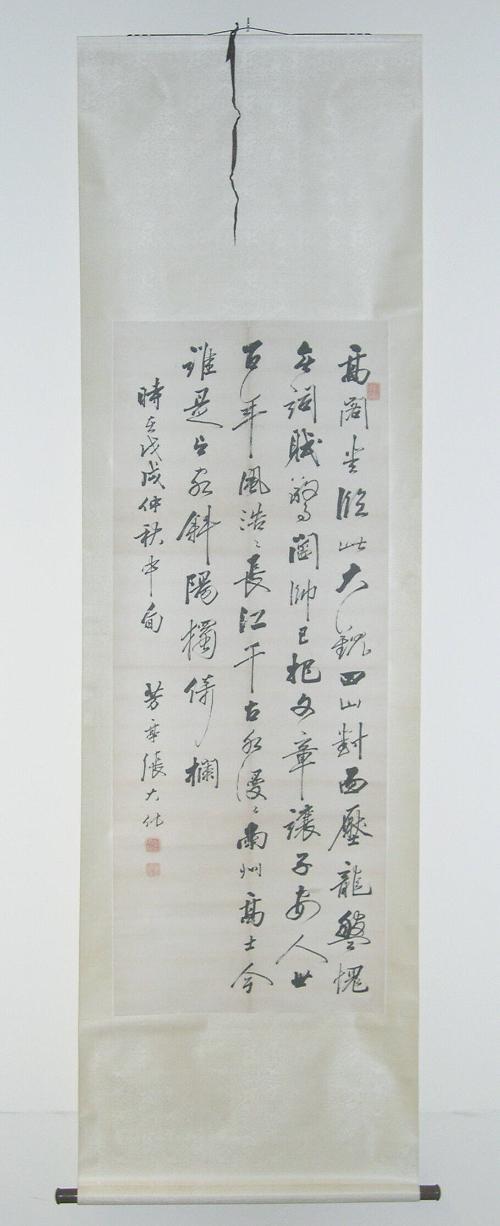 高閣登臨此大觀四山對面壓龍盤愧
無詞賦驚閻帥已把文章讓子安人世
百年風浩浩長江千古水漫漫南州高士今
誰是斜陽獨倚欄
時在戊戌仲秋中旬 芳張大仕